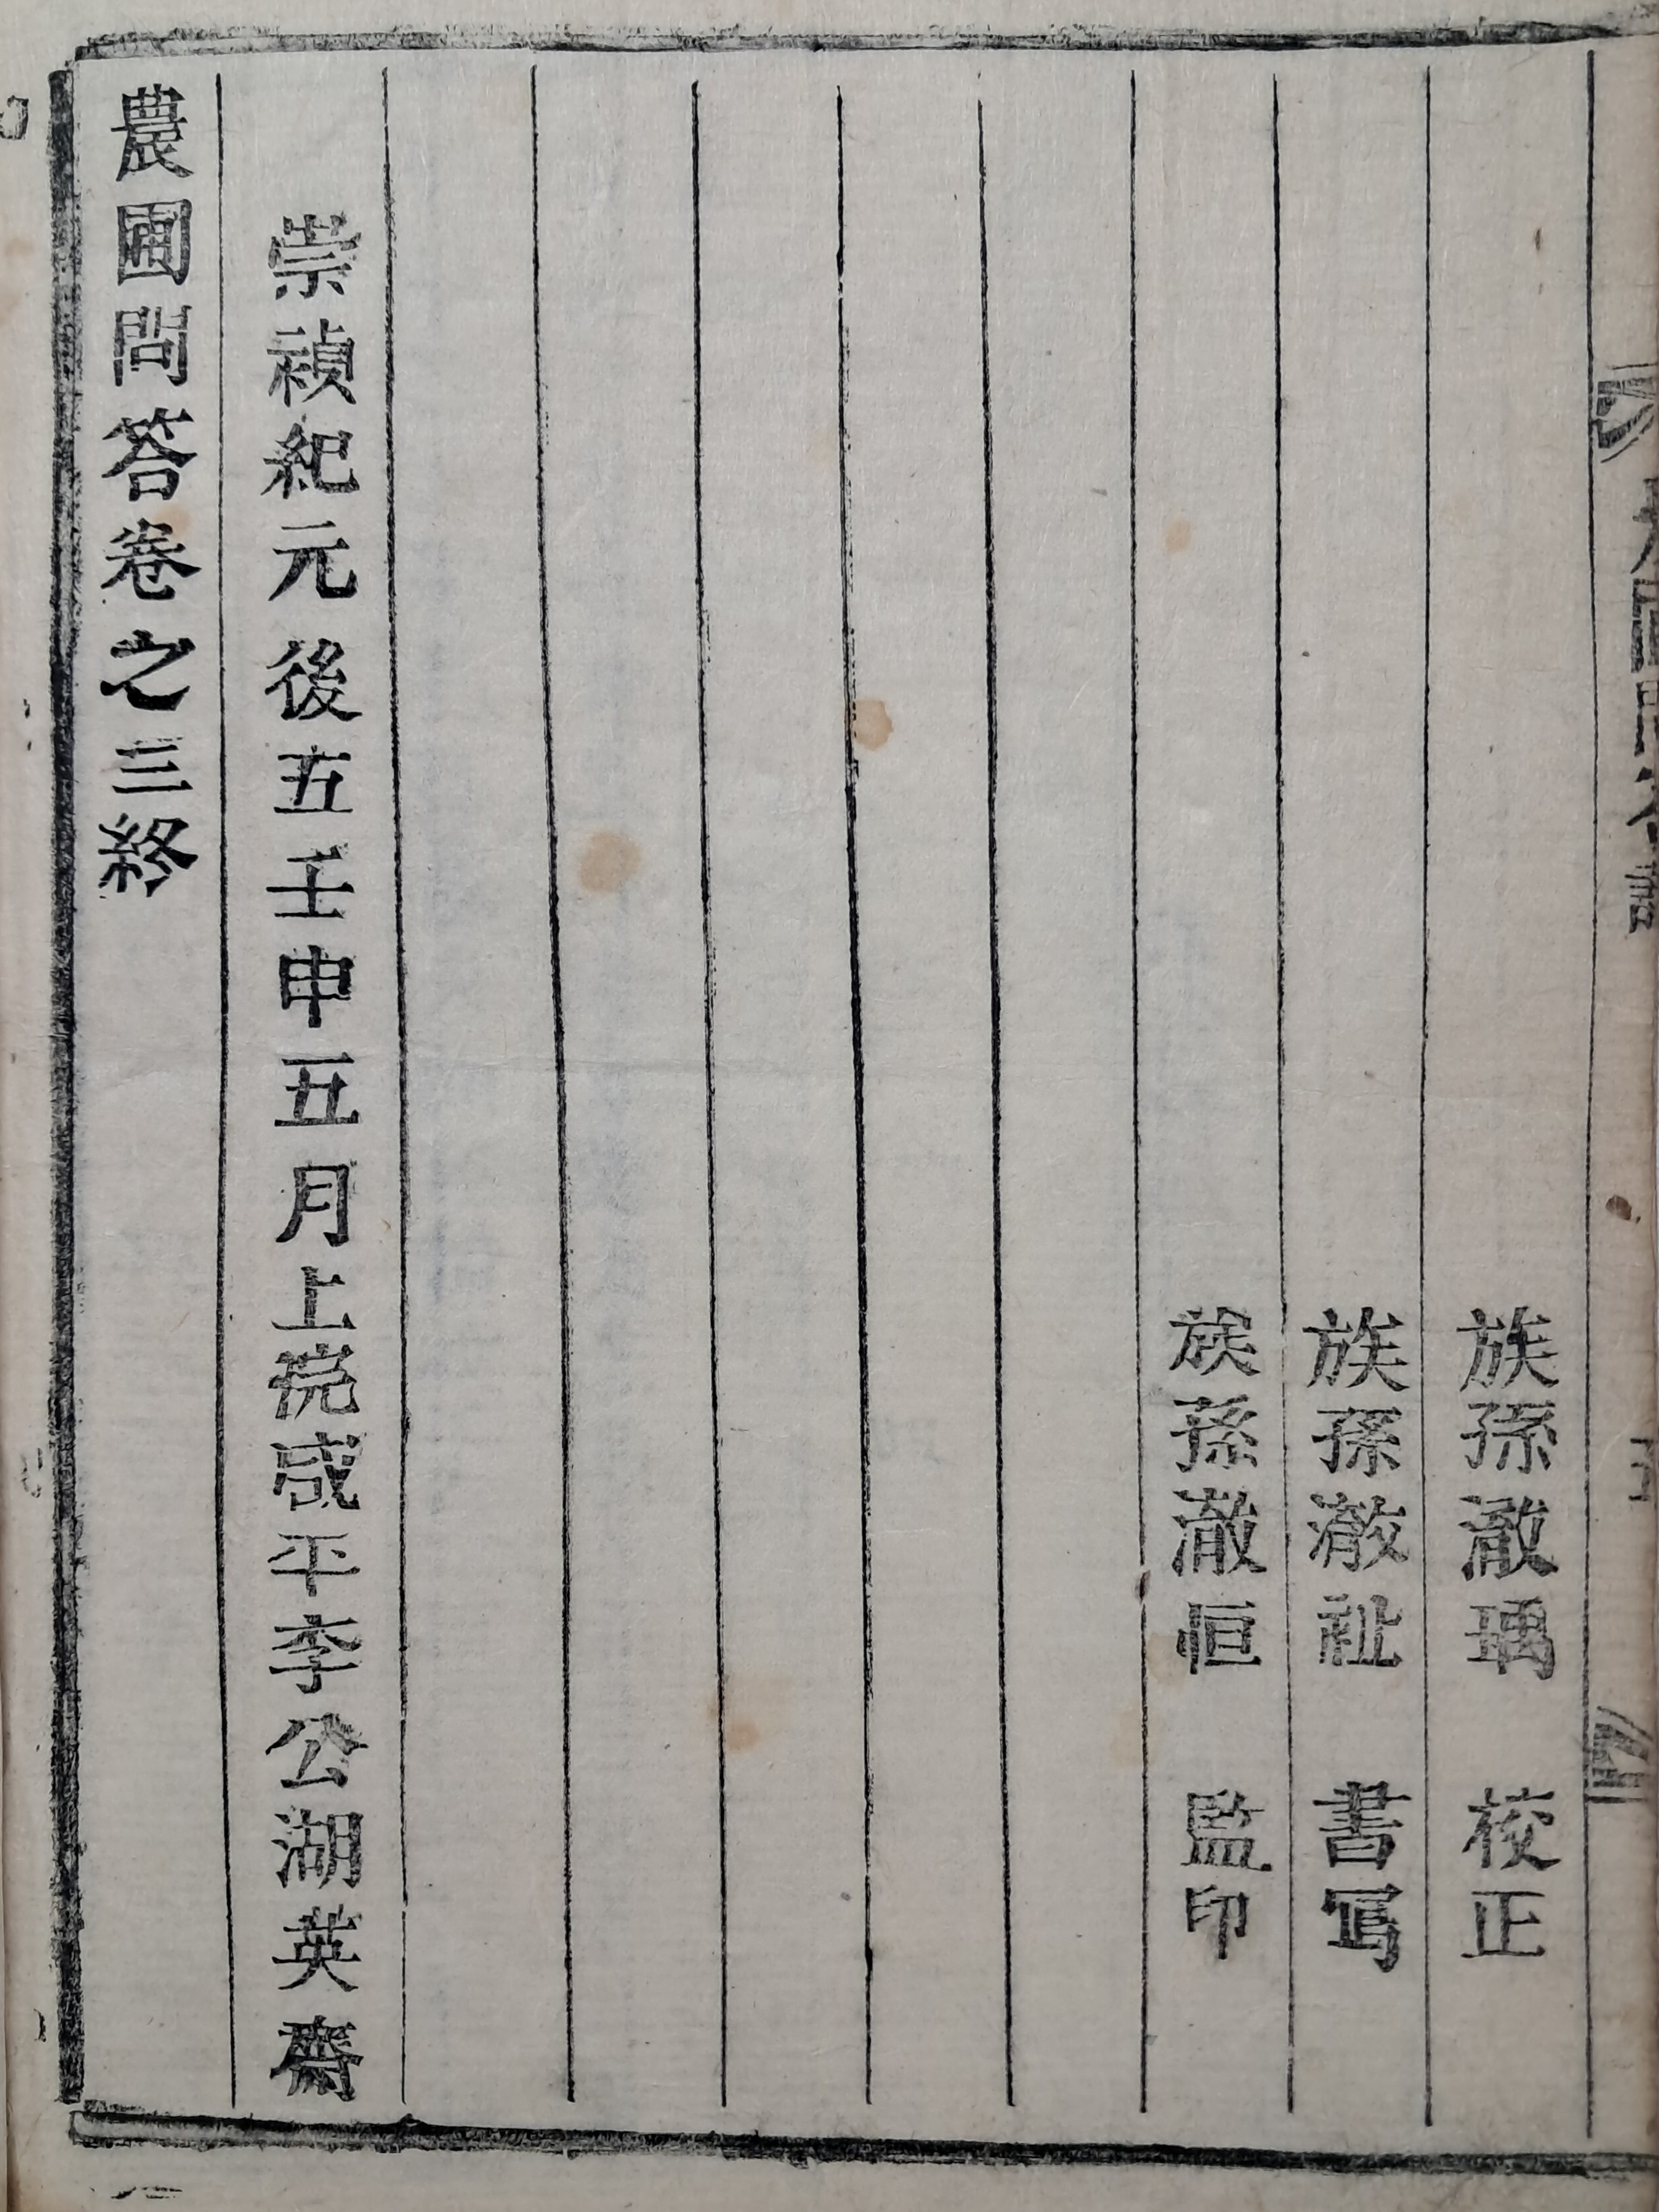 族孫澈瑀 校正
族孫澈祉 書写
族孫澈恒 監印
崇禎紀元後五壬申五月上浣咸平李公湖英齋
農圃問答卷之三終